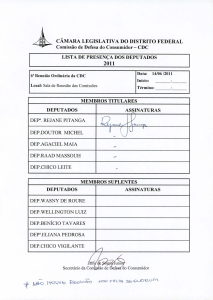 CÂMARA LEGISLATIVA DO DISTRITO FEDERAL
Comissão de Defesa do Consumidor – CDC
LISTA DE PRESENÇA DOS DEPUTADOS
2011
6ª Reunião Ordinária da CDC
Local: Sala de Reunião das Comissões
Data: 14/06 /2011
Início:
Término:
MEMBROS TITULARES
DEPUTADOS ASSINATURAS
DEPª REJANE PITANGA Rejane Pitanga
DEP.DOUTOR MICHEL
DEP.AGACIEL MAIA
DEP.RAAD MASSOUH
DEP.CHICO LEITE
MEMBROS SUPLENTES
DEPUTADOS ASSINATURAS
DEP.WASNY DE ROURE
DEP.WELLINGTON LUIZ
DEP.BENÍCIO TAVARES
DEPª ELIANA PEDROSA
DEP.CHICO VIGILANTE
Secretário da Comissão de Defesa do Consumidor
* NÃO HOUVE REUNIÃO POR FALTA DE QUORUM